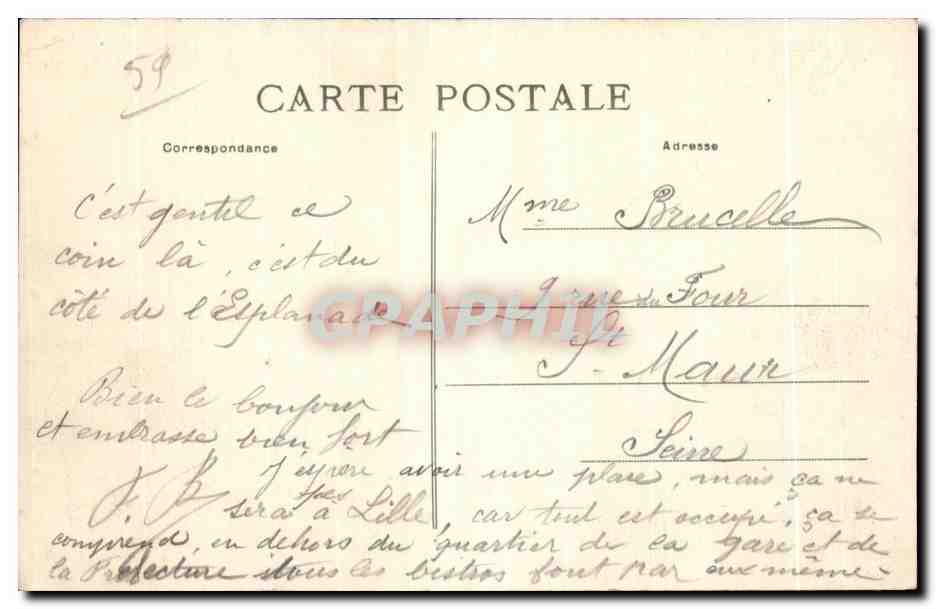 59
CARTE POSTALE
Correspondance
Adresse
C'est gentil ce
coin là, c'est du
côté de l'Esplanade
Bien le bonjour
et embrasse bien fort
F. B
Mme Brucelle
9 rue du Four
St Maur
Seine
J'espère avoir une place, mais ça ne
sera pas à Lille car tout est occupé, ça se
comprend, en dehors du quartier de la gare et de
la Préfecture tous les bistros font par eux même
GRAPHIL